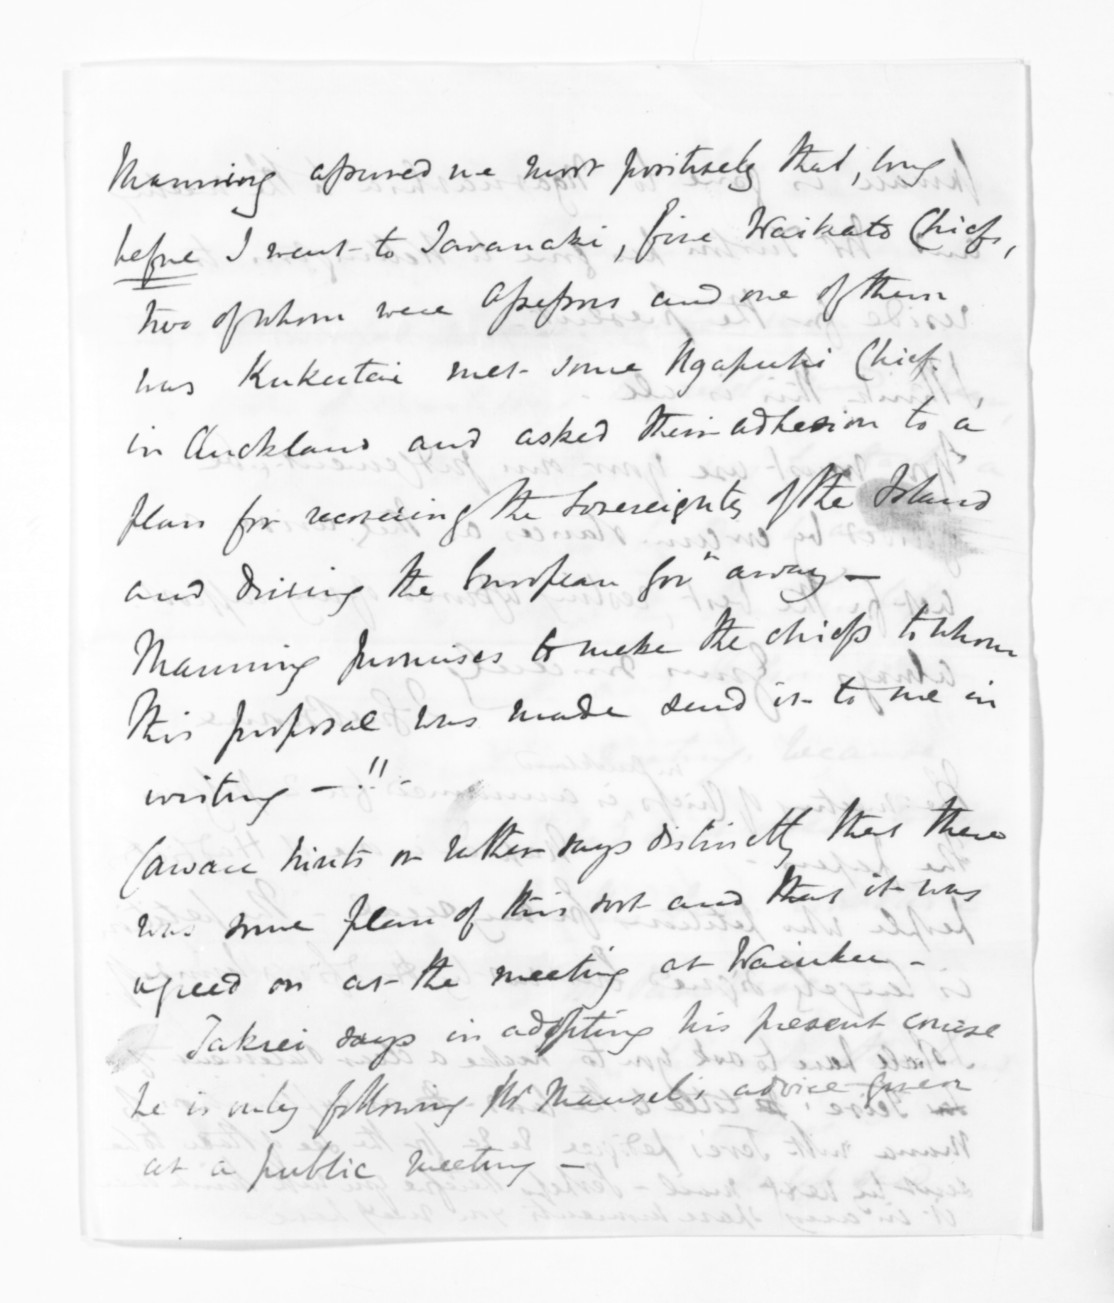 Manning assured me most positively that, long
before I went to Taranaki, five Waikato Chiefs,
two of whom were Assessors and one of them
was Kukutai met some Ngapuhi Chiefs
in Auckland and asked their adhesion to a
plan for recovering the Sovereignty of the Island
and driving the European Govt away —
Manning promises to make the chiefs to whom
this proposal was made send it to me in
writing — !!
hints or rather says distinctly that there
was some plan of this sort and that it was
agreed on at the meeting at
Takrei says in adopting his present course
he is only following Mr Mansel's advice given
at a public meeting —